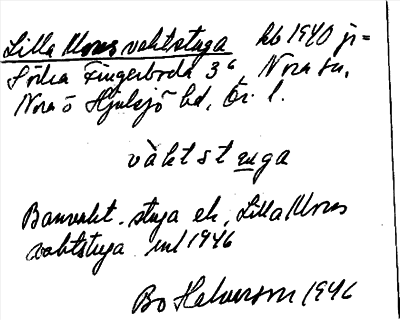 Lilla Mons vaktstuga hb 1940 ji=
Södra Fingerboda 3⁶, Nora sn,
Nora ö Hjulsjö hd, Ör. l.
vàktstuga
Banvakt-stuga ek, Lilla Mons
vaktstuga enl 1946
Bo Halvarson 1946